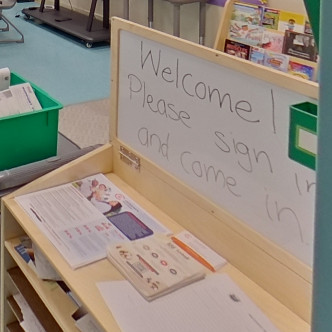 Welcome!
Please sign in
and come in.